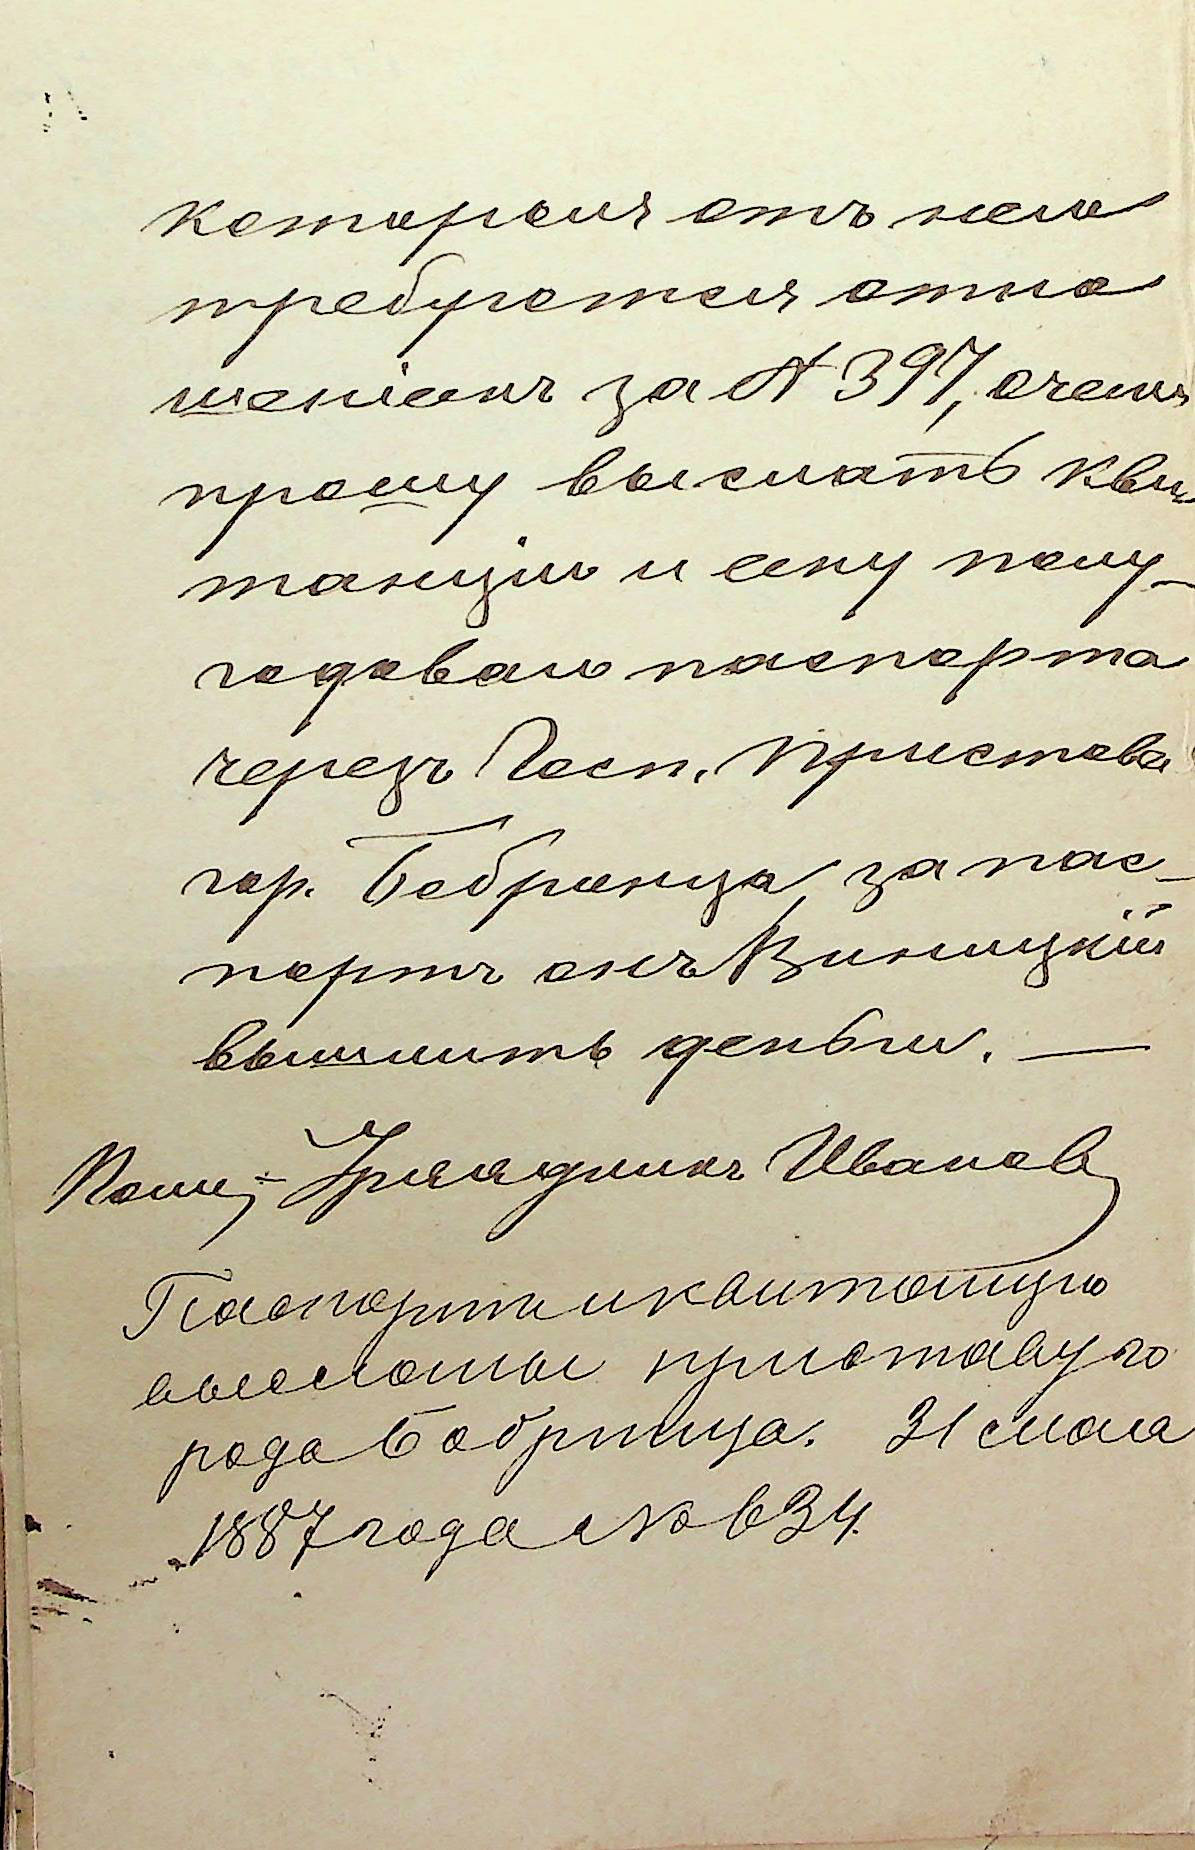 которыя отъ него
требуются отно
шеніемъ за № 397, о чемъ
прошу выслать кви
танцію и ему полу-
годовой паспорта
черезъ Госп. Пристава
гор. Бобринца, за пас-
портъ онъ Виницкій
вышлитъ деньги. —
Полиц. Урядникъ Иванов
Паспорт и квитанцую
высланы приставу го
рода Бобринца. 31 мая
1887 года № 634.